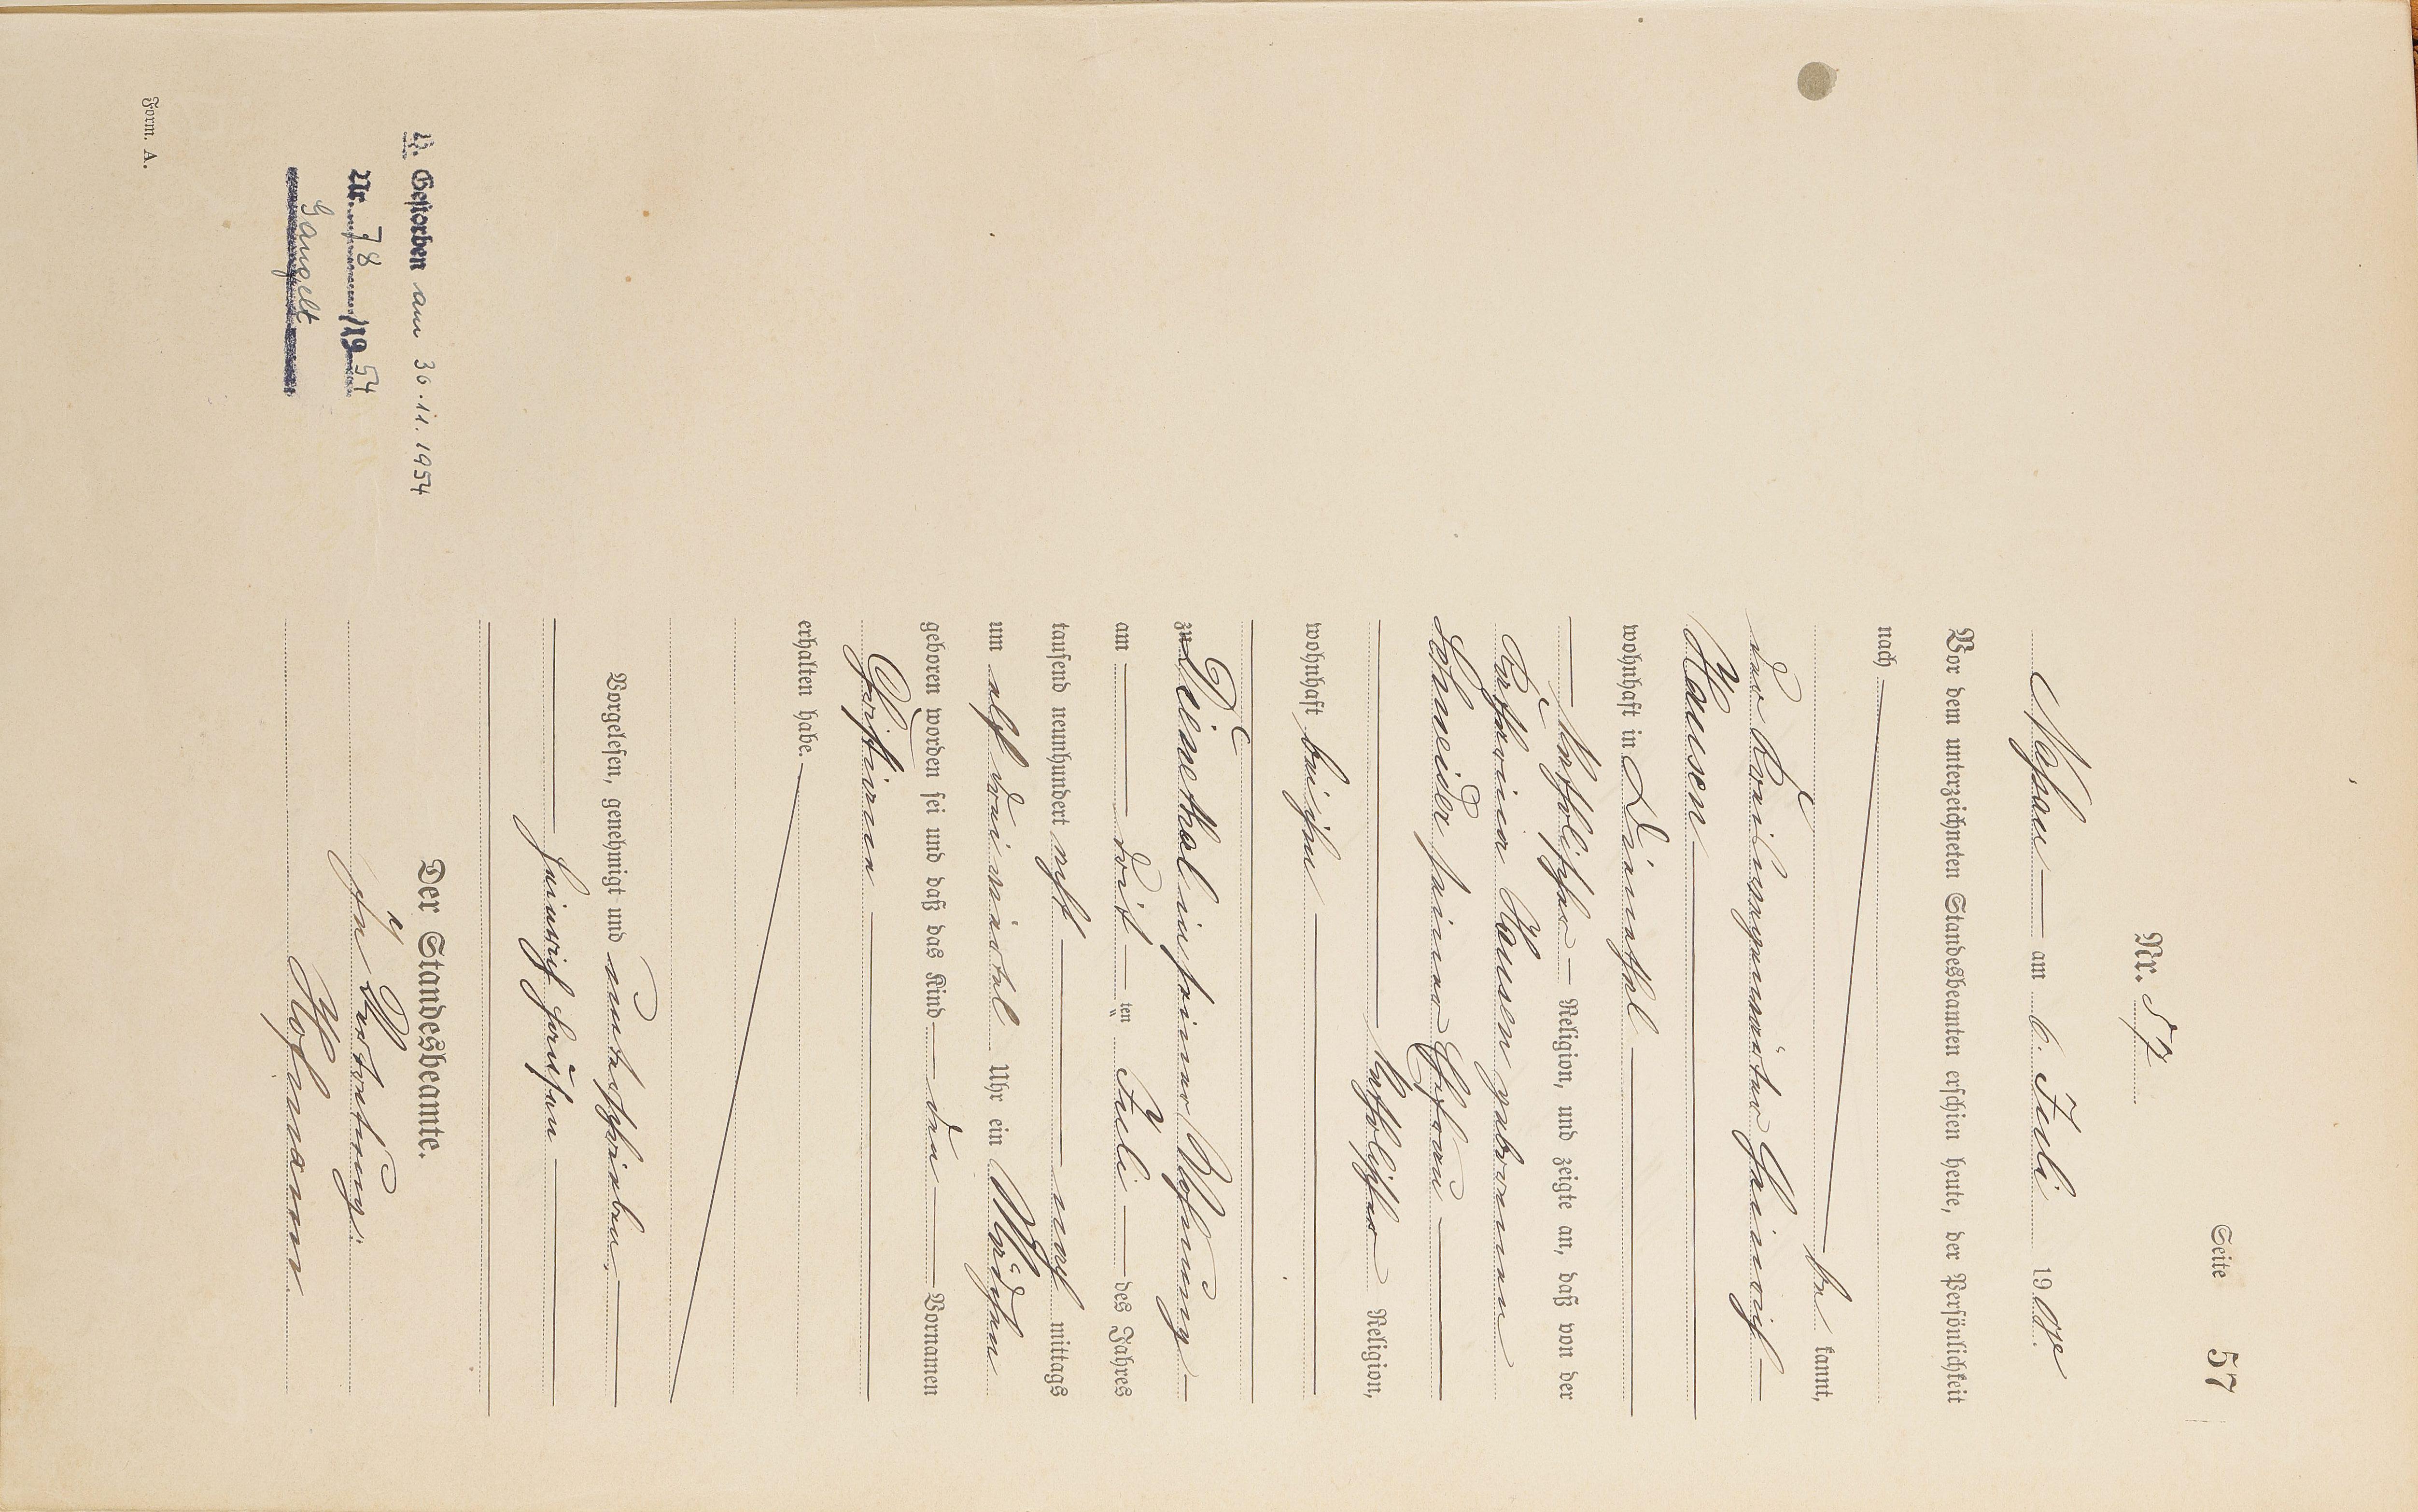 Seite 57
Nr. 57
am 6. Juli 1908.
Vor dem unterzeichneten Standesbeamten erschien heute, der Persönlichkeit
nach
be kannt,
der Heinrich
Hausen
wohnhaft in Dieinthal
katholischer Religion, und zeigte an, daß von der
Katharina Hausen geborenen
Schneider seiner Ehefrau
katholischer Religion,
wohnhaft bei ihm
zu Dieinethal in seiner Wohnung
am drit ten Juli des Jahres
tausend neunhundert acht nach mittags
um elf drei viertel Uhr ein Mädchen
geboren worden sei und daß das Kind den Vornamen
Christina
erhalten habe.
Vorgelesen, genehmigt und unterschrieben.
Heinrich Hausen
Der Standesbeamte.
In Vertretung:
Hofmann
Gestorben am 30.11.1954
Nr. 78/1954
Gangelt
Form. A.